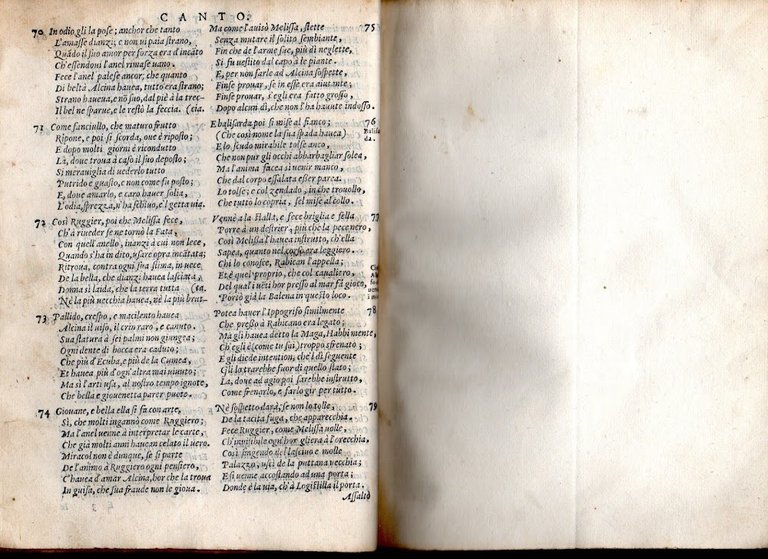 CANTO.
70 In odio gli la pose; anchor che tanto
L'amasse dianzi; e non vi paia strano,
Quãdo il suo amor per forza era d'incãto
Ch'essendoui l'anel rimase vano.
Fece l'anel palese ancor; che quanto
Di beltà Alcina hauea, tutto era strano;
Strano hauea, e nõ suo, dal piè à la trec-
Il bel ne sparue, e le restò la feccia. (cia.
71 Come fanciullo, che maturo frutto
Ripone, e poi si scorda, oue è riposto;
E dopo molti giorni è ricondutto
Là, doue troua à caso il suo deposto;
Si meraviglia di uederlo tutto
Putrido e guasto, e non come fu posto;
E, doue amarlo, e caro hauer solia,
L'odia, sprezza, n'ha schiuo, e'l getta uia.
72 Così Ruggier, poi che Melissa fece,
Ch'à riueder se ne tornò la Fata,
Con quell'anello, inanzi à cui non lece,
Quando s'ha in dito, usare opra incãtata;
Ritroua, contra ogni sua stima, in uece
De la bella, che dianzi hauea lasciata,
Donna sì laida, che la terra tutta (ta.
Nè la più vecchia hauea, nè la più brut-
73 Pallido, crespo, e macilento hauea
Alcina il uiso, il crin raro, e canuto.
Sua statura à sei palmi non giungea:
Ogni dente di bocca era caduto;
Che più d'Ecuba, e più de la Cumea,
Et hauea più d'ogn'altra mai uiuuto;
Ma sì l'arti usa, al nostro tempo ignote,
Che bella e giouenetta parer puote.
74 Giouane, e bella ella si fa con arte,
Sì, che molti ingannò come Ruggiero;
Ma l'anel uenne à interpretar le carte,
Che già molti anni hauean celato il uero.
Miracol non è dunque, se si parte
De l'animo à Ruggiero ogni pensiero,
C'hauea d'amar Alcina, hor che la troua
In guisa, che sua fraude non le gioua.
Ma come l'auisò Melissa, stette 75
Senza mutare il solito sembiante,
Fin che de l'arme sue, più dì neglette,
Si fu uestito dal capo à le piante.
E, per non farle ad Alcina sospette,
Finse prouar, se in esse era aiutante;
Finse prouar, s'egli era fatto grosso,
Dopo alcun dì, che non l'ha hauute indosso.
E balisarda poi si mise al fianco; 76
(Che così nome la sua spada hauea)
E lo scudo mirabile tolse anco,
Che non pur gli occhi abbarbagliar solea,
Ma l'anima facea sì uenir manco,
Che dal corpo essalata esser parea.
Lo tolse; e col zendado, in che trouollo,
Che tutto lo copria, sel mise al collo.
Balisar
da.
Venne à la stalla, e fece briglia e sella 77
Porre à un destrier, più che la pece nero,
Così Melissa l'hauea instrutto, ch'ella
Sapea, quanto nel corso era leggiero.
Chi lo conosce, Rabican l'appella;
Et è quel proprio, che col caualiero,
Del qual i uẽti hor presso al mar fã gioco,
Portò già la Balena in questo loco.
Potea hauer l'Ippogrifo similmente 78
Che presso à Rabicano era legato;
Ma gli hauea detto la Maga, Habbi mente,
Ch'egli è (come tu sai) troppo sfrenato;
E gli diede intention, che'l dì seguente
Gli lo trarrebbe fuor di quello stato;
Là, doue ad agio poi sarebbe instrutto,
Come frenarlo, e farlo gir per tutto.
Nè sospetto darà, se non lo tolle, 79
De la tacita fuga, che apparecchia.
Fece Ruggier, come Melissa uolle,
Ch'inuisibile ogn'hor gli era à l'orecchia,
Così fingendo del lasciuo e molle
Palazzo, uscì de la puttana vecchia;
E si uenne accostando ad una porta;
Donde è la uia, ch'à Logistilla il porta.
Assaltò